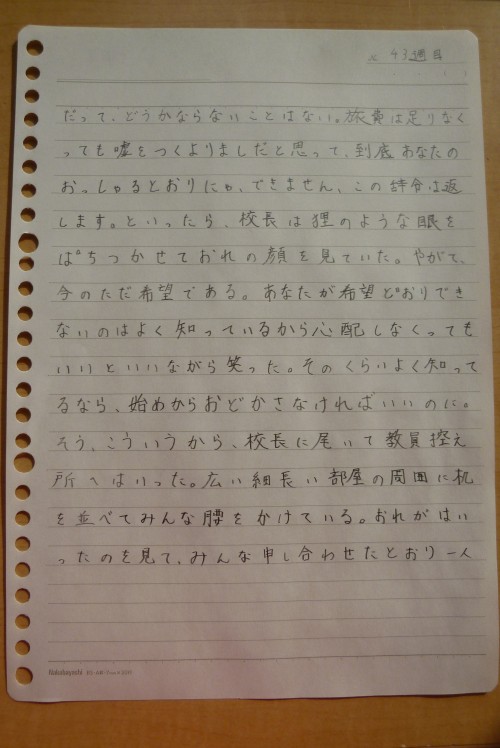 43週目
だって、どうかならないことはない。旅費は足りなく
っても嘘をつくよりましだと思って、到底あなたの
おっしゃるとおりにゃ、できません、この辞令は返
します。といったら、校長は狸のような眼を
ぱちつかせておれの顔を見ていた。やがて、
今のただ希望である。あなたが希望どおりでき
ないのはよく知っているから心配しなくっても
いいといいながら笑った。そのくらいよく知って
るなら、始めからおどかさなければいいのに。
そう、こういうから、校長に尾いて教員控え
所へはいった。広い細長い部屋の周囲に机
を並べてみんな腰をかけている。おれがはい
ったのを見て、みんな申し合わせたとおり一人
Nakabayashi